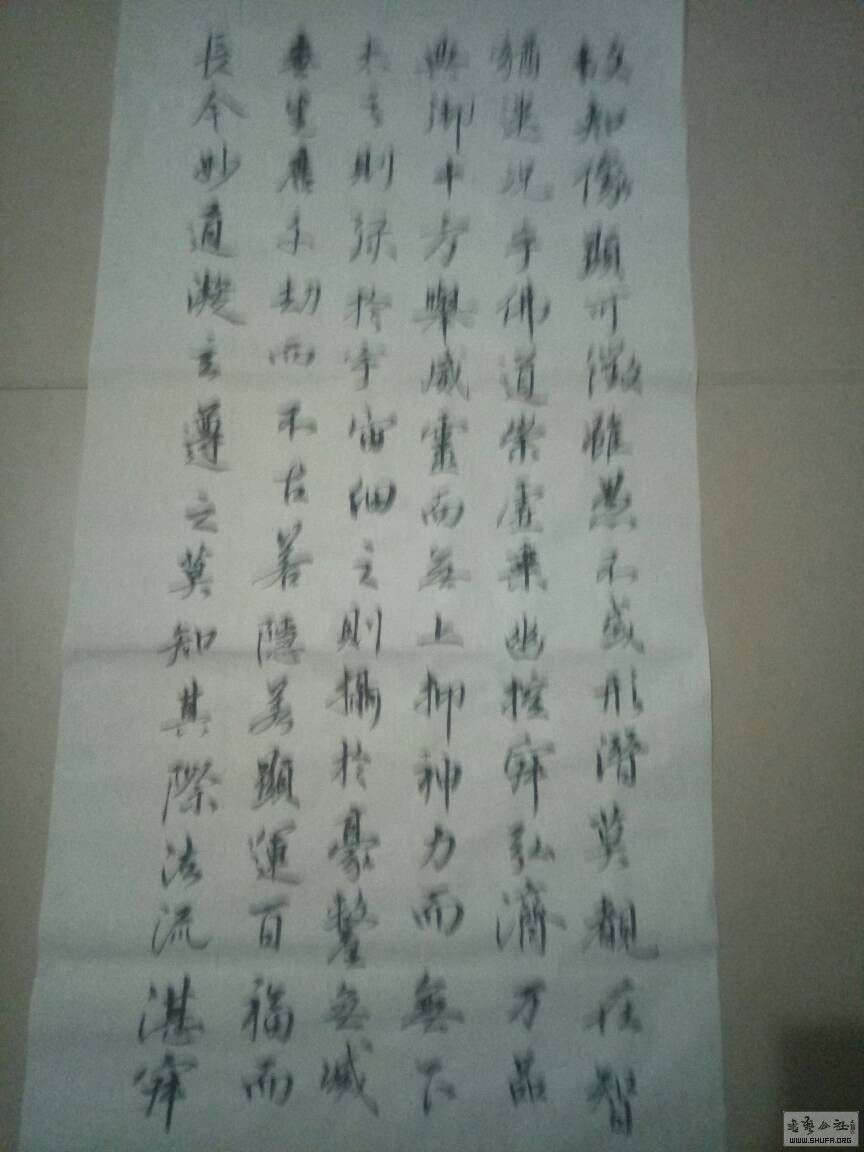 故知像顯可徵雖愚不惑形潛莫覩在智
猶迷況乎佛道崇虛乘幽控寂弘濟万品
典御十方舉威靈而無上抑神力而無下
大之則弥於宇宙細之則攝於豪釐無滅
無生歷千劫而不古若隱若顯運百福而
長今妙道凝玄遵之莫知其際法流湛寂
WWW.SHUFA.ORG